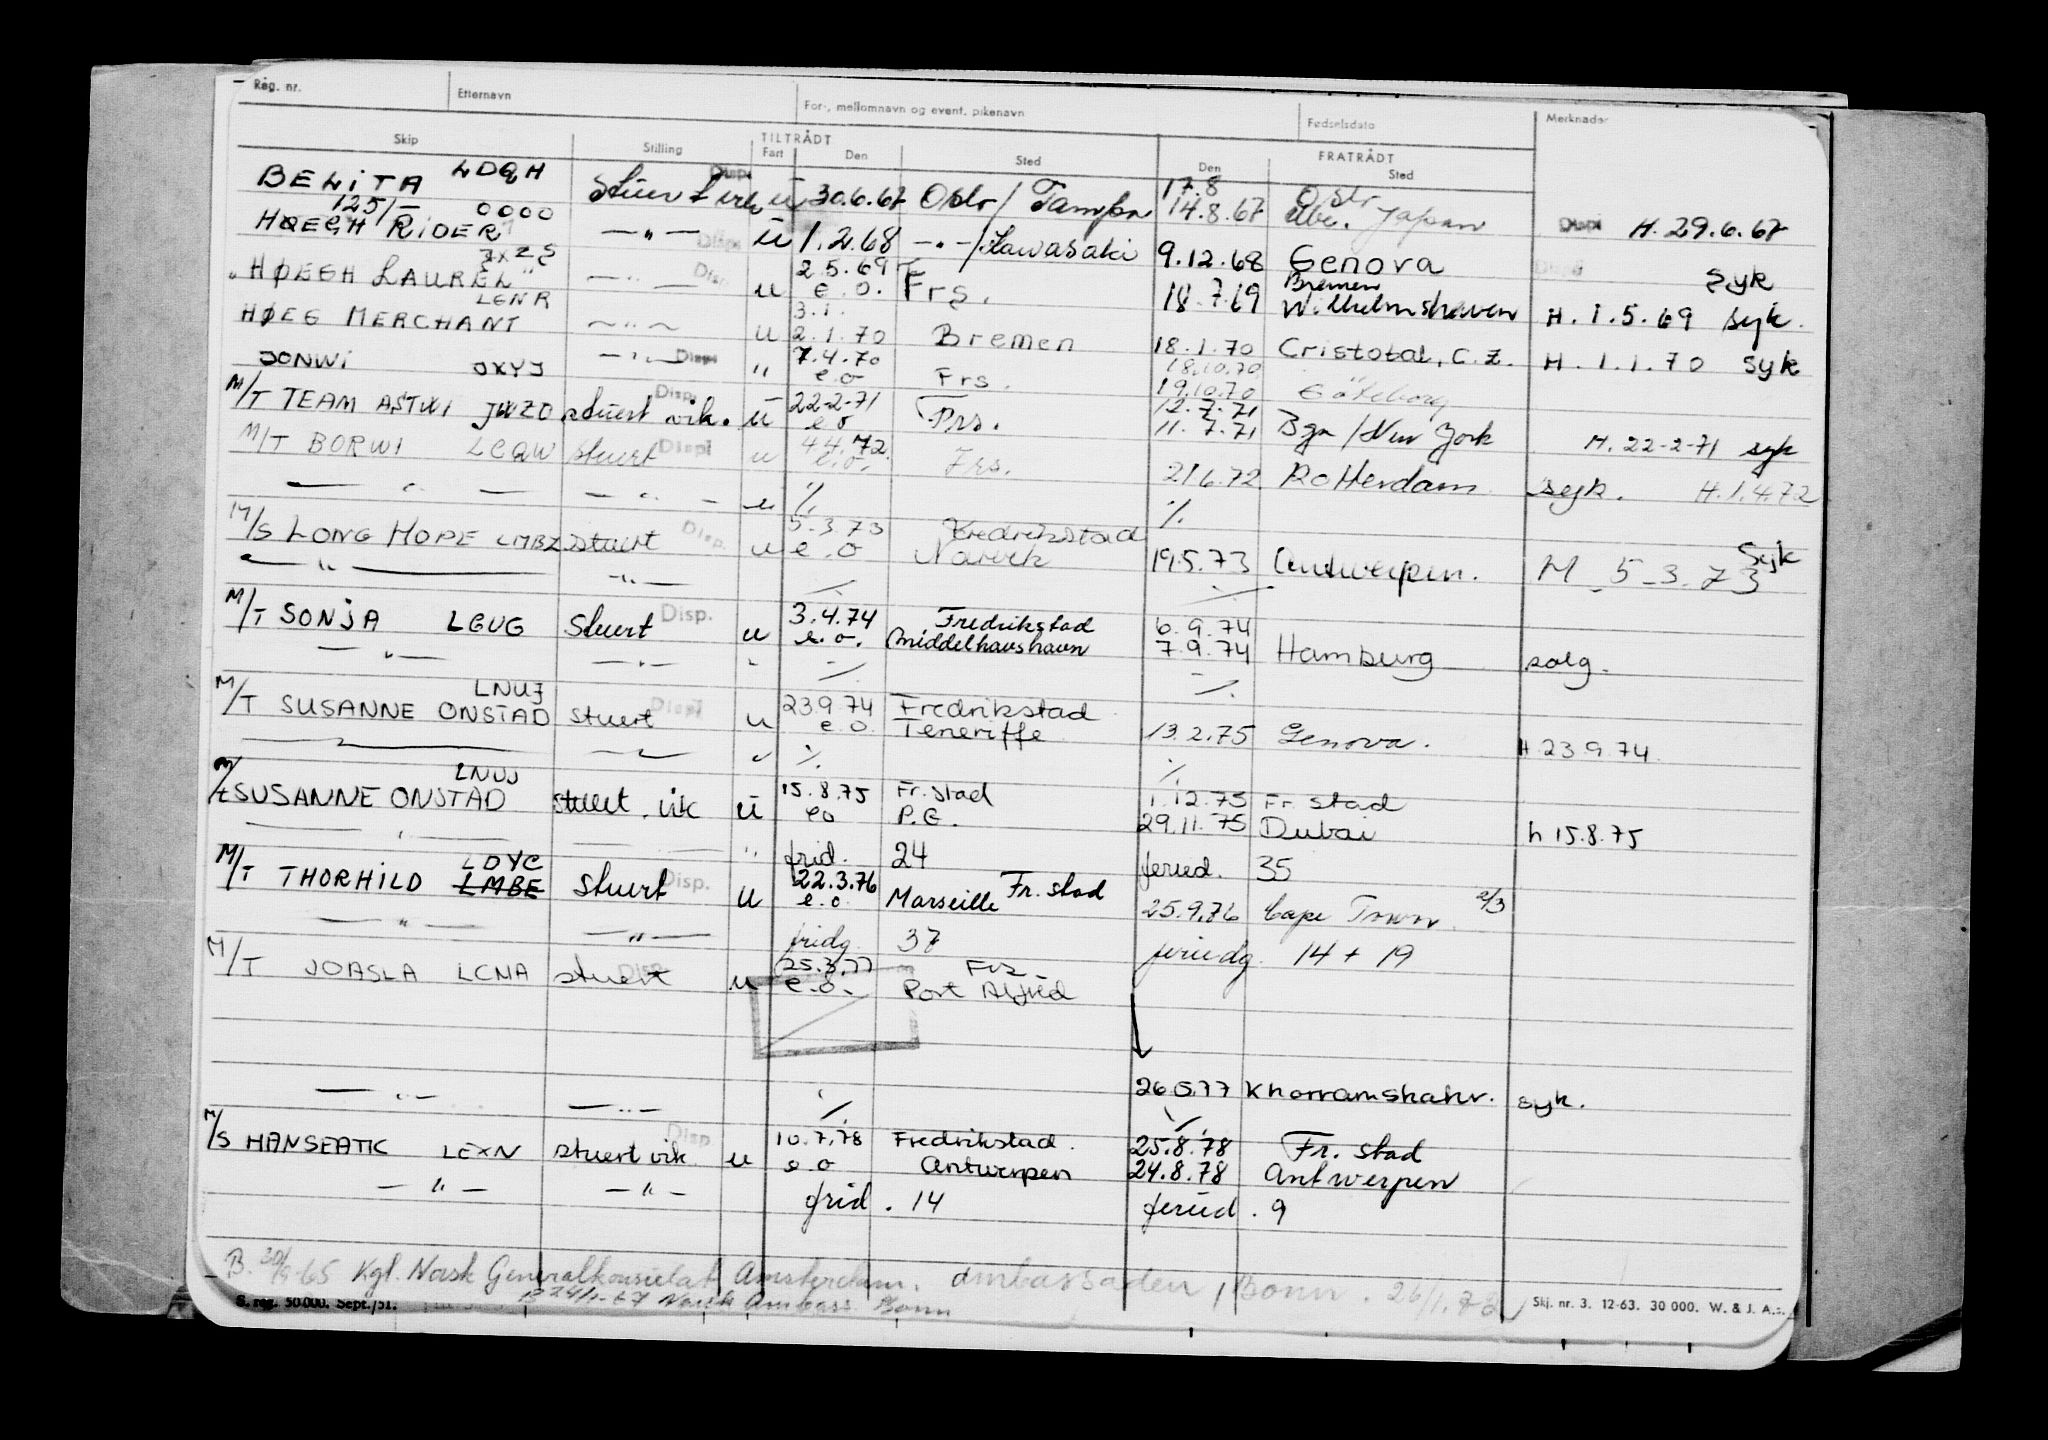 Reg. nr. Etternavn For-, mellomnavn og event. pikenavn Fødselsdato Merknader
Skip Stilling TILTRÅDT Fart Den Sted FRATRÅDT Den Sted
BELITA LDQH Disp. u 30.6.67 Oslo / Tampa 17.8 Oslo
125/- 14.8.67 Japan Disp H. 29.6.67
HØEGH RIDER OOOO — " — Disp. u 1.2.68 — " — / Kawasaki 9.12.68 Genova Syk
"HØEGH LAUREL" — " — Disp. u 2.5.69 e.o. Frs. 18.7.69 Bremen Wilhelmshaven H. 1.5.69 syk.
HØEG MERCHANT LENR — " — u 3.1. 2.1.70 Bremen 18.1.70 Cristobal, C.Z. H. 1.1.70 syk
JONWI JXYJ — " — Disp " 7.4.70 e.o Frs. 18.10.70 19.10.70 Göteborg
M/T TEAM ASTWI JWZO stuert vik. Disp. u 22-2-71 e.o Frs. 12.7.71 11.7.71 Bgn / New York H. 22-2-71 syk
M/T BORWI LCQW stuert Disp u 4.4.72 e.o. Frs. 21.6.72 Rotterdam syk. H. 1.4.72
— " — — " — u ./. ./.
M/S LONG HOPE LMBZ stuert Disp. u 5-3.73 e.o Fredrikstad Narvik 19.5.73 Antwerpen. M. 5-3.73 Syk
— " — — " — ./. ./.
M/T SONJA LGUG Stuert Disp. u 3.4.74 e.o. Fredrikstad Middelhavshavn 6.9.74 7.9.74 Hamburg salg.
— " — — " — " ./. ./.
M/T SUSANNE ONSTAD LNUJ stuert Disp u 23.9.74 e.o. Fredrikstad Teneriffe 13.2.75 Genova. H 23.9.74
./. ./.
M/t SUSANNE ONSTAD LNUJ stuert. vik u 15.8.75 eo Fr.stad P.G. 1.12.75 29.11.75 Fr.stad Dubai h 15.8.75
— " — " frid. 24 feried. 35
M/T THORHILD LDYC LMBE stuert Disp. u 22.3.76 e.o. Marseille Fr.stad 25.9.76 Cape Town 2/3
— " — — " — fridg. 37 feriedg. 14 + 19
M/T JOASLA LCNA stuert Disp u 25.3.77 e.o. Frs Port Alfred
— " — — " — ./. 26.5.77 Khorramshahr. syk.
M/S HANSEATIC LEXN stuert vik. Disp u 10.7.78 e.o Fredrikstad. Antwerpen ./. 25.8.78 24.8.78 Fr.stad Antwerpen
— " — — " — frid. 14 feried. 9
B. 20/9-65 Kgl. Norsk Generalkonsulat, Amsterdam. Ambassaden, Bonn. 26/1.72
S. reg. 50.000. Sept./51. Norsk Ambass. Bonn Skj. nr. 3. 12-63. 30 000. W. & J. A.s.